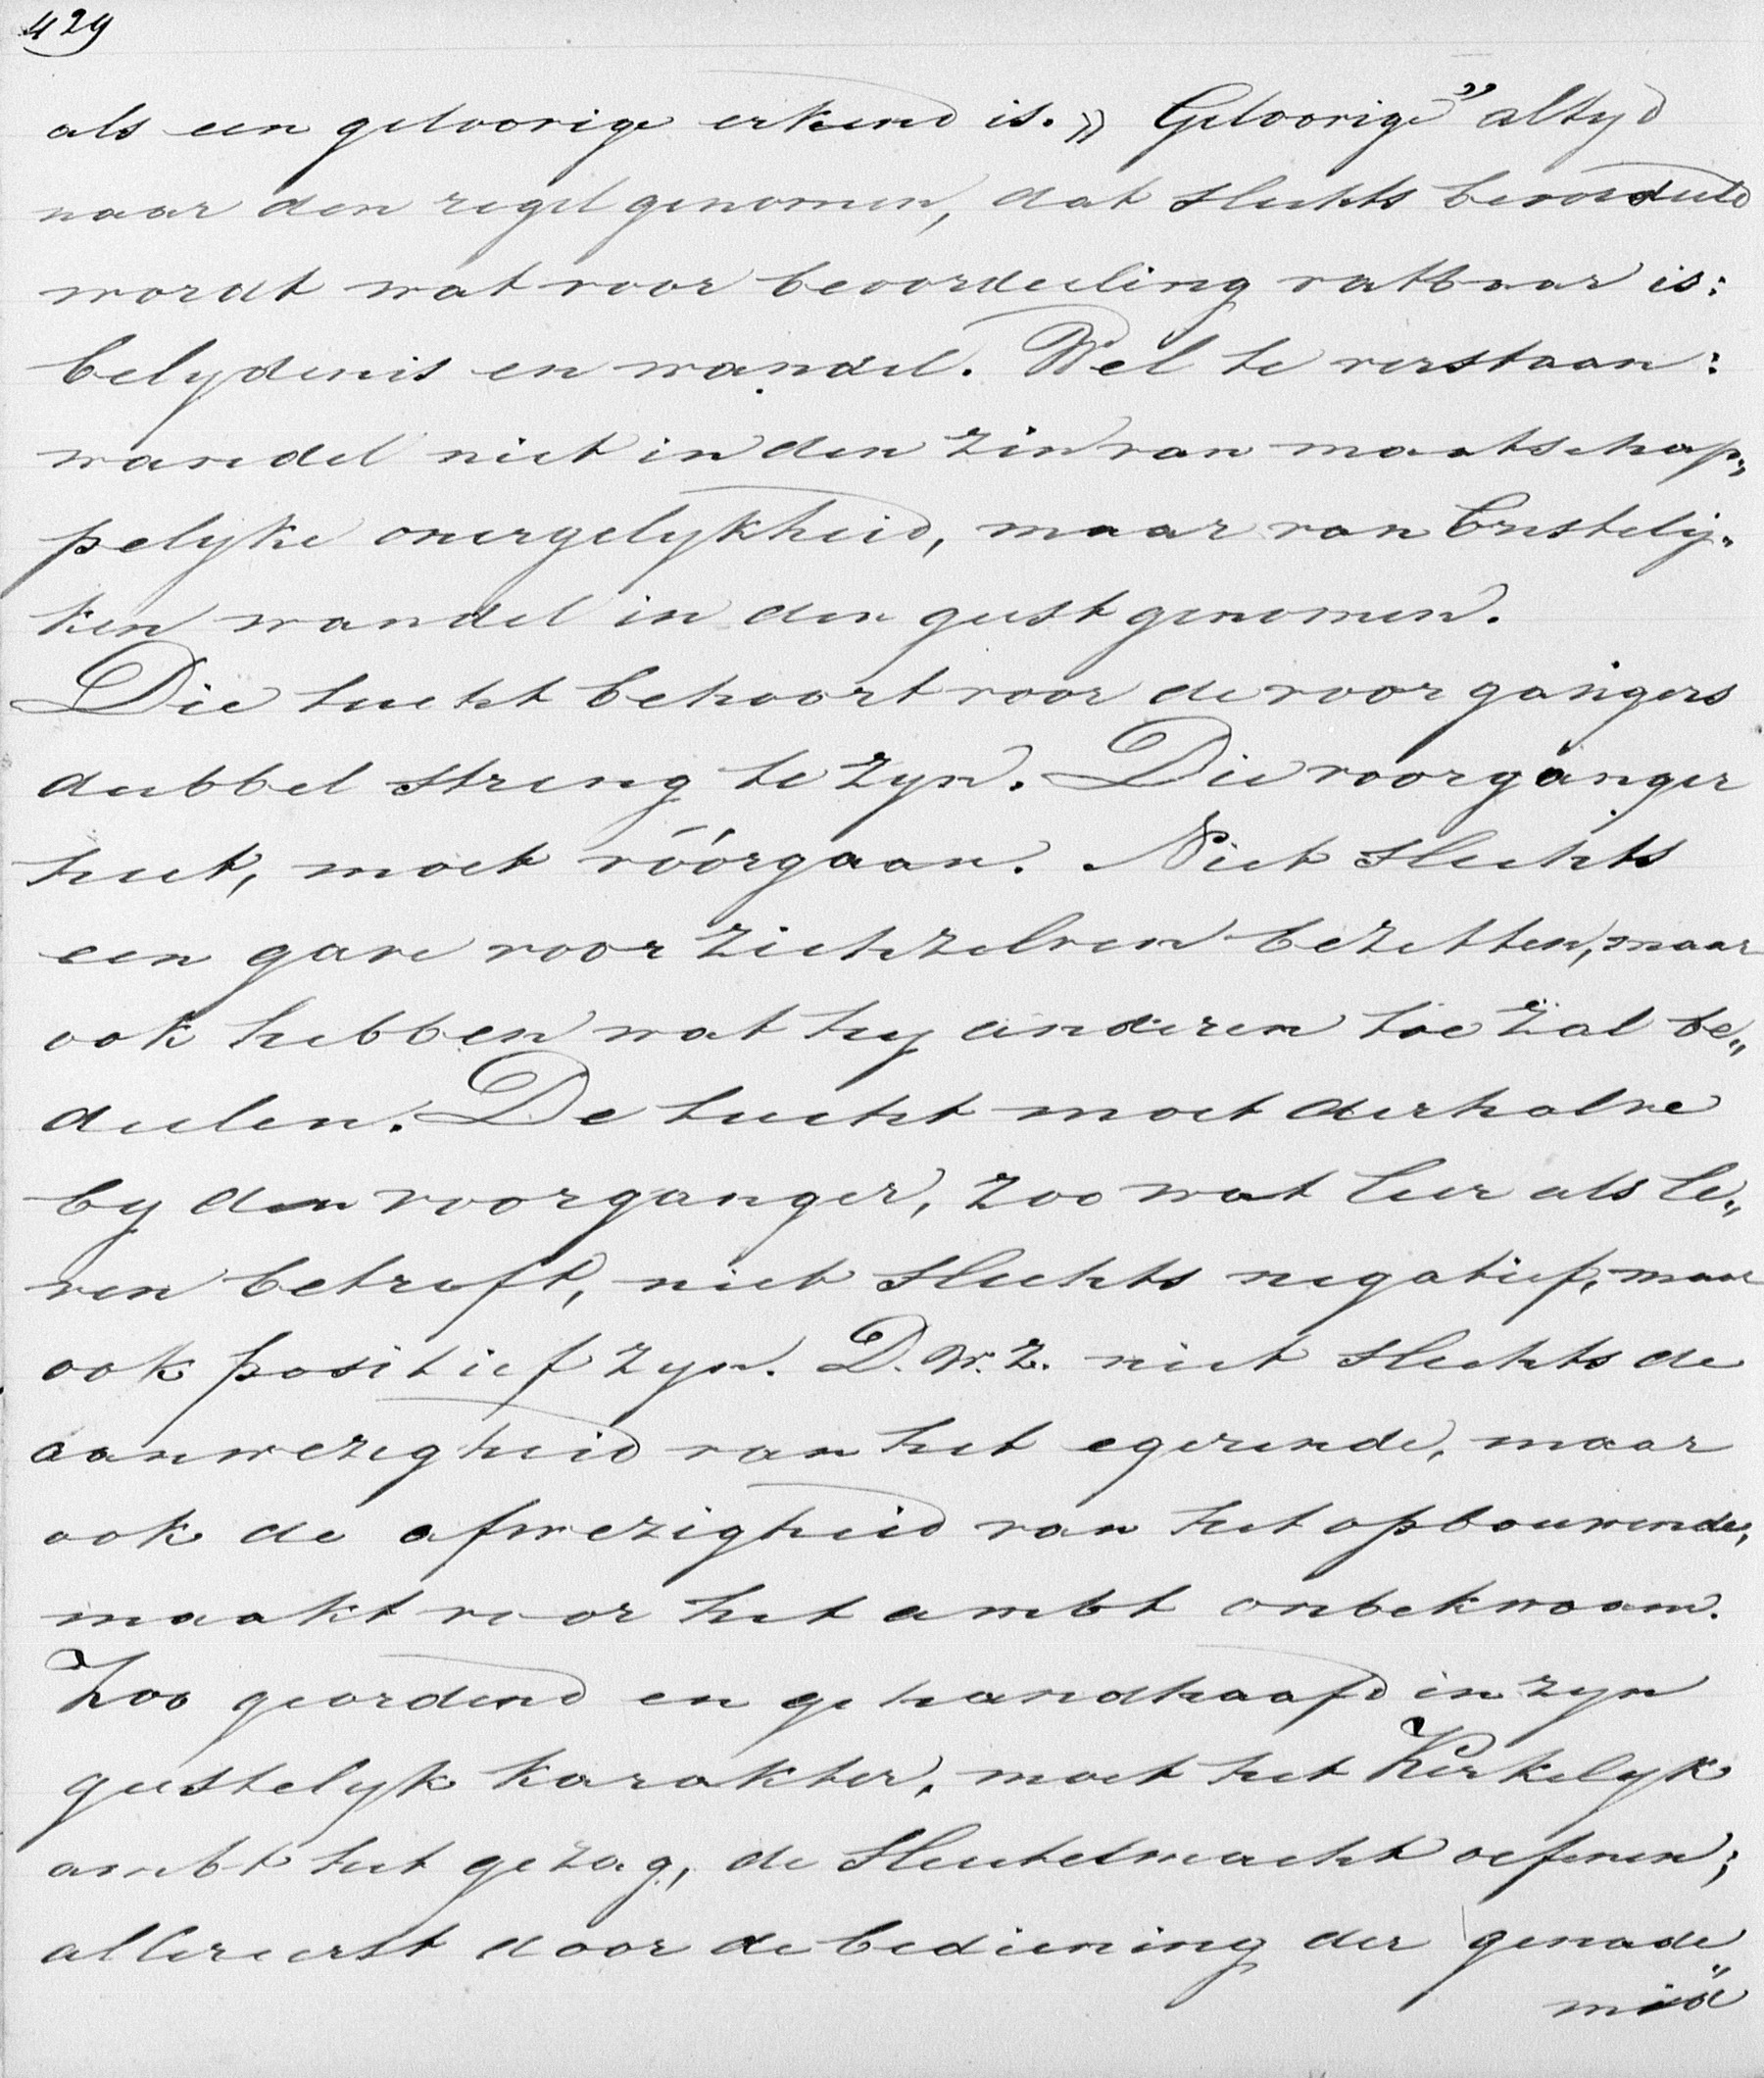 429
als een geloovige erkend is. „Geloovige” altyd
naar den regel genomen, dat slechts beoordeeld
wordt wat voor beoordeeling vatbaar is:
belydenis en wandel. Wel te verstaan:
wandel niet in den zin van maatschap„
pelyke onergelykheid, maar van Cristely„
ken wandel in den geest genomen.
Die tucht behoort voor de voorgangers
dubbel streng te zyn. Die voorganger
heet, moet vóórgaan. Niet slechts
een gave voor zichzelven bezitten, maar
ook hebben wat hy anderen toe zal be„
deelen. De tucht moet derhalve
by den voorganger, zoo wat leer als le„
ven betreft, niet slechts negatief, maar
ook positief zyn. D.w.z. niet slechts de
aanwezigheid van het ergerende, maar
ook de afwezigheid van het opbouwende,
maakt voor het ambt onbekwaam.
Zoo geordend en gehandhaafd in zyn
geestelyk karakter, moet het Kerkelyk
ambt het gezag, de sleutelmacht oefenen;
allereerst door de bediening der genade„
mid„